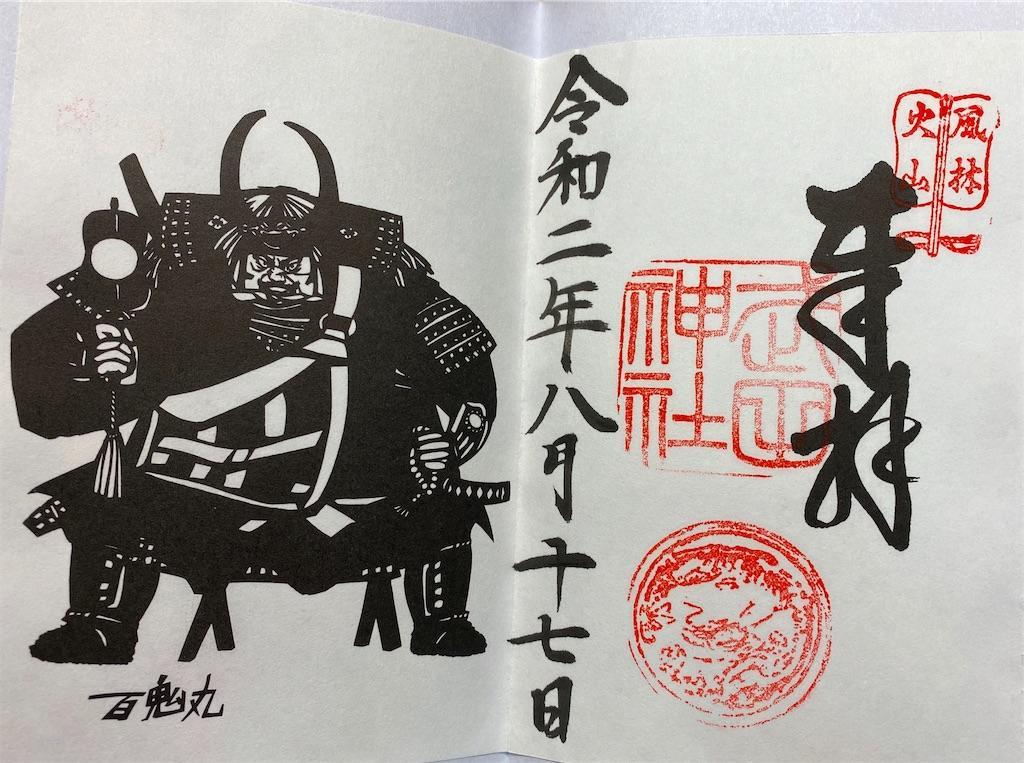 風林
火山
奉拝
武田
神社
令和二年八月十七日
百鬼丸